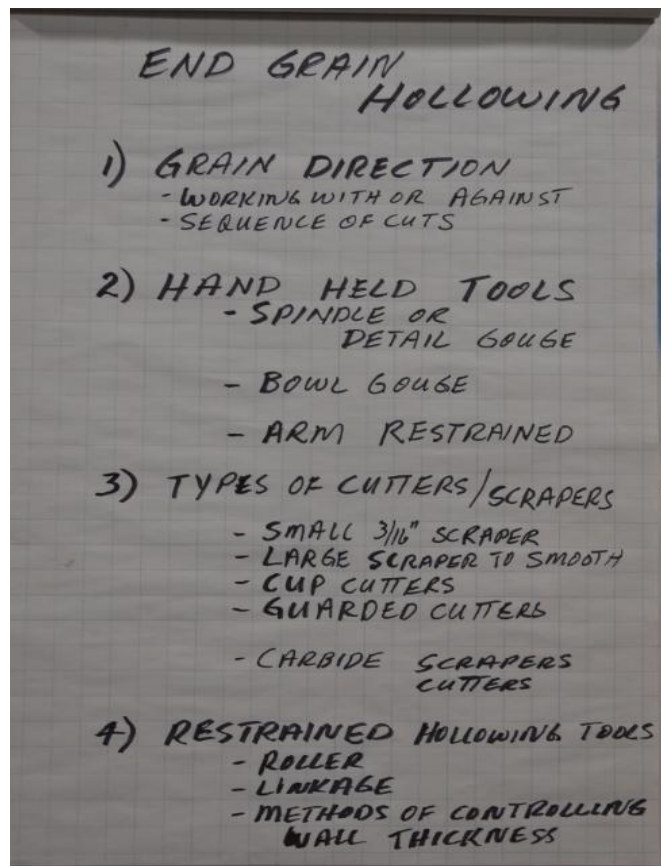 END GRAIN
HOLLOWING
1) GRAIN DIRECTION
- WORKING WITH OR AGAINST
- SEQUENCE OF CUTS
2) HAND HELD TOOLS
- SPINDLE OR
DETAIL GOUGE
- BOWL GOUGE
- ARM RESTRAINED
3) TYPES OF CUTTERS/SCRAPERS
- SMALL 3/16" SCRAPER
- LARGE SCRAPER TO SMOOTH
- CUP CUTTERS
- GUARDED CUTTERS
- CARBIDE SCRAPERS
CUTTERS
4) RESTRAINED HOLLOWING TOOLS
- ROLLER
- LINKAGE
- METHODS OF CONTROLLING
WALL THICKNESS